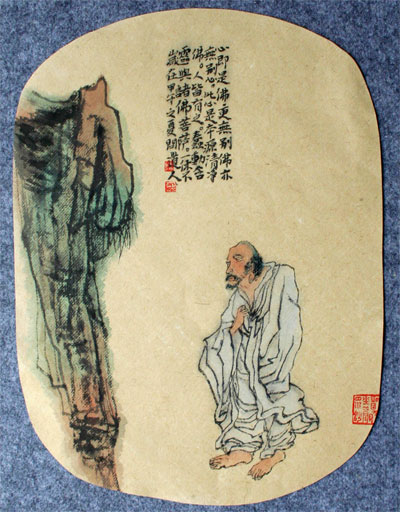 心即是佛更無別佛亦
無別心此心是本源清淨
佛。人皆有之蠢動含
靈與諸佛菩薩一体不
歲在甲午之夏道人